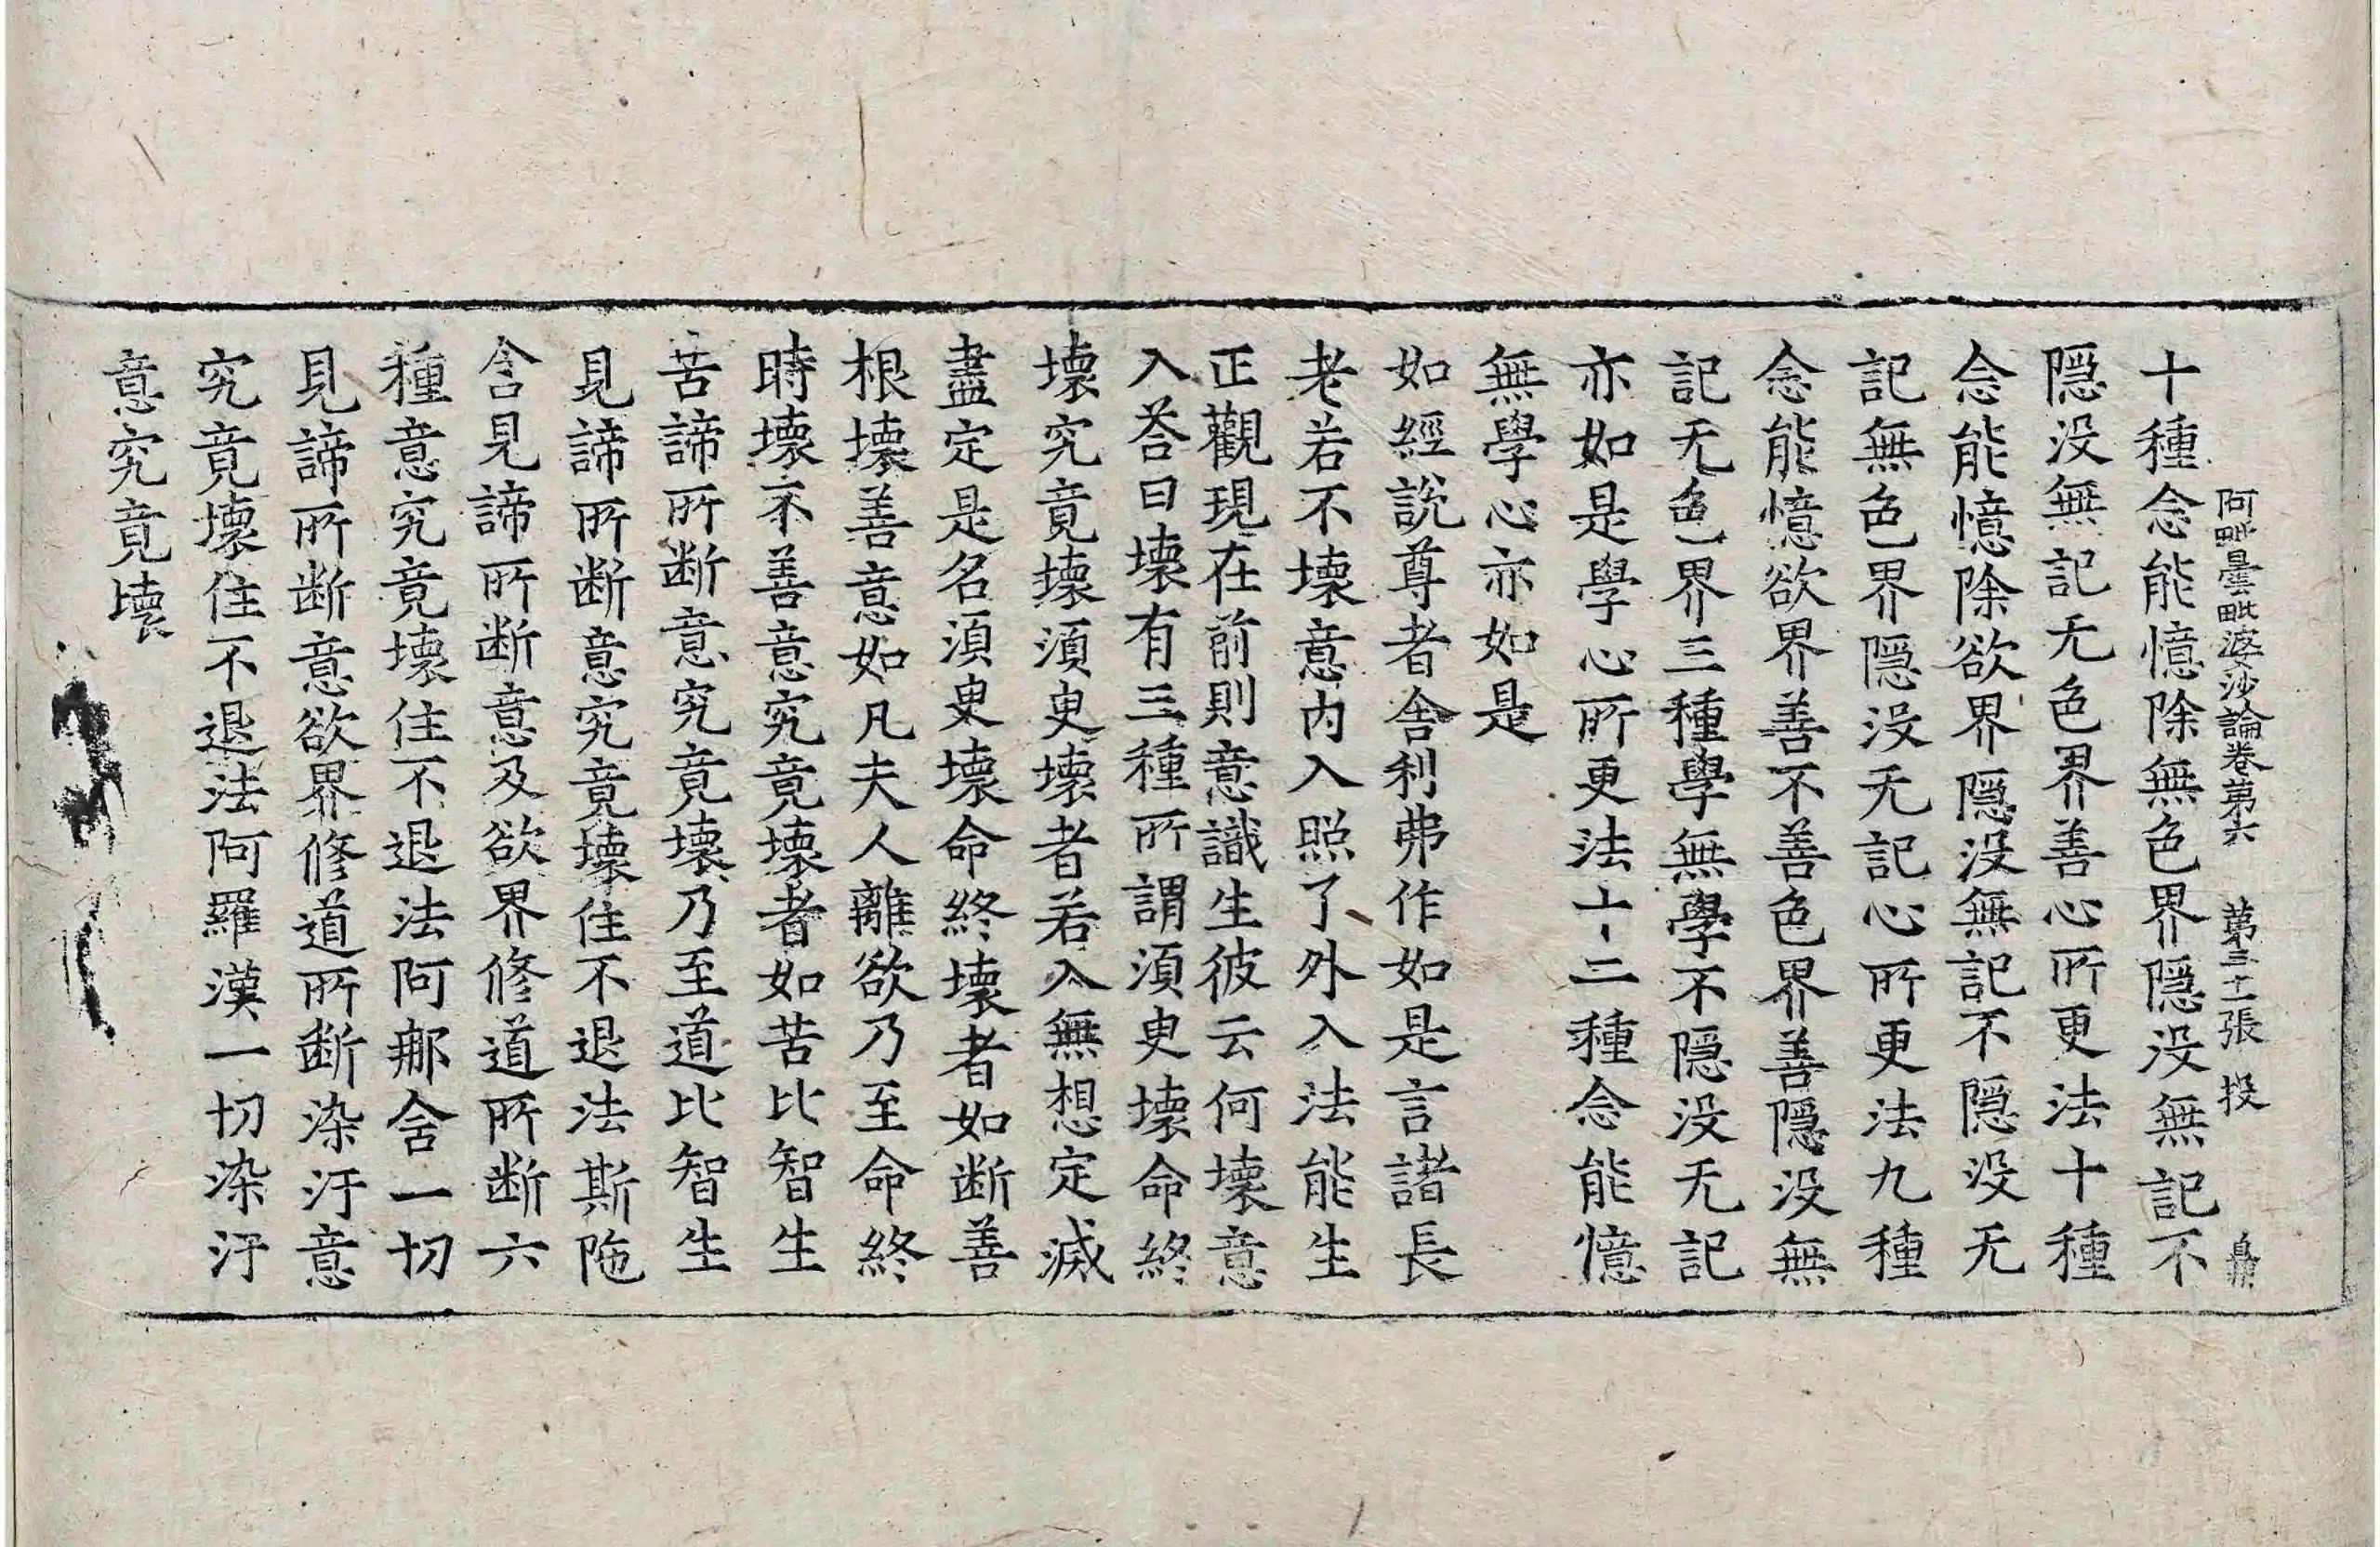 阿毗曇毗婆沙論卷第六 第三十一張 投
十種念能憶除無色界隱没無記不
隱没無記无色界善心所更法十種
念能憶除欲界隱没無記不隱没无
記無色界隱没无記心所更法九種
念能憶欲界善不善色界善隱没無
記无色界三種學無學不隱没无記
亦如是學心所更法十二種念能憶
無學心亦如是
如經說尊者舍利弗作如是言諸長
老若不壞意内入照了外入法能生
正觀現在前則意識生彼云何壞意
入荅曰壞有三種所謂湏臾壞命終
壞究竟壞湏臾壞者若入無想定滅
盡定是名湏臾壞命終壞者如断善
根壞善意如凡夫人離欲乃至命終
時壞不善意究竟壞者如苦比智生
苦諦所断意究竟壞乃至道比智生
見諦所断意究竟壞住不退法斯陁
含見諦所断意及欲界修道所断六
種意究竟壞住不退法阿那含一切
見諦所断意欲界修道所断染汙意
究竟壞住不退法阿羅漢一切染汙
意究竟壞